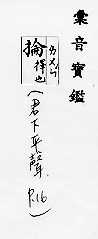 彙音寶鑑
掄擇也
(君下平聲 P.16)